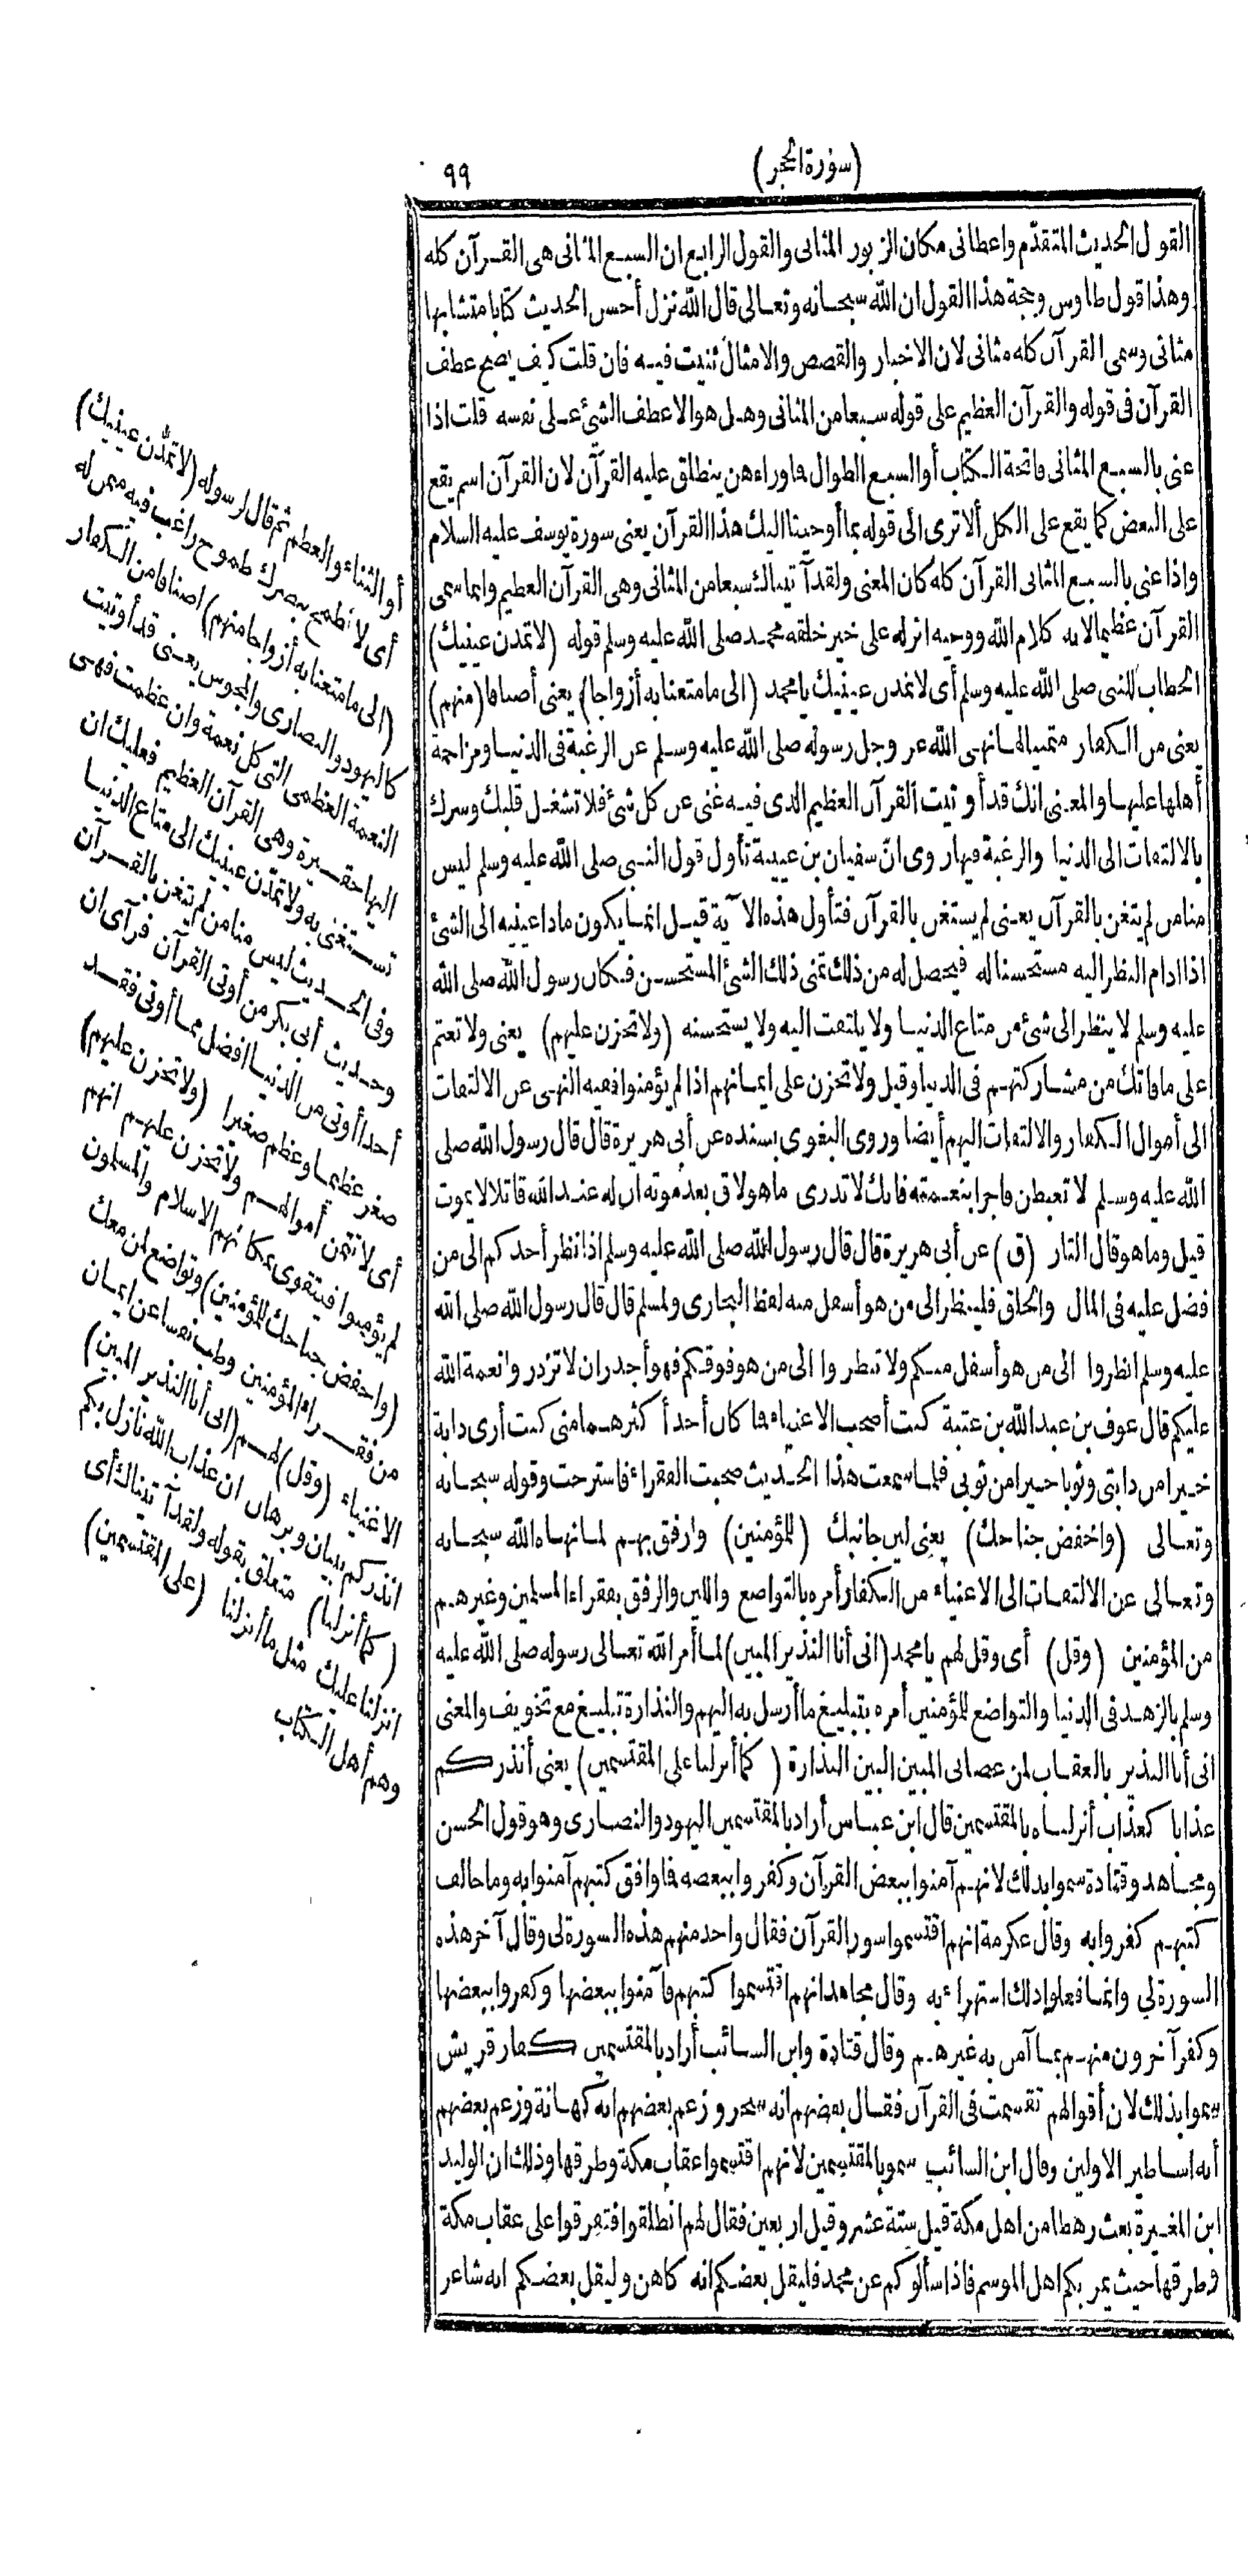 (سورة الحجر)
٩٩
القول الحديث المتقدّم واعطانى مكان الزبور المثانى والقول الرابع ان السبع المثانى هى القرآن كله
وهذا قول طاوس وحجة هذا القول ان الله سبحانه وتعالى قال الله نزل أحسن الحديث كتابا متشابها
مثانى وسمى القرآن كله مثانى لان الاخبار والقصص والامثال ثنيت فيه فان قلت كيف يصح عطف
القرآن فى قوله والقرآن العظيم على قوله سبعا من المثانى وهل هو الا عطف الشئ على نفسه قلت اذا
عنى بالسبع المثانى فاتحة الكتاب أو السبع الطوال فما وراءهن ينطلق عليه القرآن لان القرآن اسم يقع
على البعض كما يقع على الكل ألا ترى الى قوله بما أوحينا اليك هذا القرآن يعنى سورة يوسف عليه السلام
واذا عنى بالسبع المثانى القرآن كله كان المعنى ولقد آتيناك سبعا من المثانى وهى القرآن العظيم وانما سمى
القرآن عظيما لانه كلام الله ووحيه انزله على خير خلقه محمد صلى الله عليه وسلم قوله (لا تمدن عينيك)
الخطاب للنبى صلى الله عليه وسلم أى لا تمدن عينيك يا محمد (الى ما متعنا به أزواجا) يعنى أصنافا (منهم)
يعنى من الكفار متمنيا لها نهى الله عز وجل رسوله صلى الله عليه وسلم عن الرغبة فى الدنيا ومزاحمة
أهلها عليها والمعنى انك قد أوتيت القرآن العظيم الذى فيه غنى عن كل شئ فلا تشغل قلبك وسرك
بالالتفات الى الدنيا والرغبة فيها روى انّ سفيان بن عيينة تأول قول النبى صلى الله عليه وسلم ليس
منا من لم يتغن بالقرآن يعنى لم يستغن بالقرآن فتأول هذه الآية قيل انما يكون مادا عينيه الى الشئ
اذا ادام النظر اليه مستحسنا له فيحصل له من ذلك تمنى ذلك الشئ المستحسن فكان رسول الله صلى الله
عليه وسلم لا ينظر الى شئ من متاع الدنيا ولا يلتفت اليه ولا يستحسنه (ولا تحزن عليهم) يعنى ولا تغتم
على ما فاتك من مشاركتهم فى الدنيا وقيل ولا تحزن على ايمانهم اذا لم يؤمنوا ففيه النهى عن الالتفات
الى أموال الكفار والالتفات اليهم أيضا وروى البغوى بسنده عن أبى هريرة قال قال رسول الله صلى
الله عليه وسلم لا تغبطن فاجرا بنعمته فانك لا تدرى ما هو لاق بعد موته ان له عند الله قاتلا لا يموت
قيل وما هو قال النار (ق) عن أبى هريرة قال قال رسول الله صلى الله عليه وسلم اذا نظر أحدكم الى من
فضل عليه فى المال والخلق فلينظر الى من هو أسفل منه لفظ البخارى ولمسلم قال قال رسول الله صلى الله
عليه وسلم انظروا الى من هو أسفل منكم ولا تنظروا الى من هو فوقكم فهو أجدر ان لا تزدروا نعمة الله
عليكم قال عوف بن عبد الله بن عتبة كنت أصحب الاغنياء فما كان أحد أكثر هما منى كنت أرى دابة
خيرا من دابتى وثوبا خيرا من ثوبى فلما سمعت هذا الحديث صحبت الفقراء فاسترحت وقوله سبحانه
وتعالى (واخفض جناحك) يعنى لين جانبك (للمؤمنين) وارفق بهم لما نهاه الله سبحانه
وتعالى عن الالتفات الى الاغنياء من الكفار أمره بالتواضع واللين والرفق بفقراء المسلمين وغيرهم
من المؤمنين (وقل) أى وقل لهم يا محمد (انى أنا النذير المبين) لما أمر الله تعالى رسوله صلى الله عليه
وسلم بالزهد فى الدنيا والتواضع للمؤمنين أمره بتبليغ ما أرسل به اليهم والنذارة تبليغ مع تخويف والمعنى
انى أنا النذير بالعقاب لمن عصانى المبين البين النذارة (كما أنزلنا على المقتسمين) يعنى أنذركم
عذابا كعذاب أنزلناه بالمقتسمين قال ابن عباس أراد بالمقتسمين اليهود والنصارى وهو قول الحسن
ومجاهد وقتادة سموا بذلك لانهم آمنوا ببعض القرآن وكفروا ببعضه فما وافق كتبهم آمنوا به وما خالف
كتبهم كفروا به وقال عكرمة انهم اقتسموا سور القرآن فقال واحد منهم هذه السورة لى وقال آخر هذه
السورة لى وانما فعلوا ذلك استهزاء به وقال مجاهد انهم اقتسموا كتبهم فآمنوا ببعضها وكفروا ببعضها
وكفر آخرون منهم بما آمن به غيرهم وقال قتادة وابن السائب أراد بالمقتسمين كفار قريش
سموا بذلك لان أقوالهم تقسمت فى القرآن فقال بعضهم انه سحر وزعم بعضهم انه كهانة وزعم بعضهم
أنه اساطير الاولين وقال ابن السائب سموا بالمقتسمين لانهم اقتسموا عقاب مكة وطرقها وذلك ان الوليد
ابن المغيرة بعث رهطا من اهل مكة قيل ستة عشر وقيل اربعين فقال لهم انطلقوا فتفرقوا على عقاب مكة
وطرقها حيث يمر بكم اهل الموسم فاذا سألوكم عن محمد فليقل بعضكم انه كاهن وليقل بعضكم انه شاعر
أو الثناء والعظم ثم قال لرسوله (لا تمدّن عينيك)
أى لا تطمح ببصرك طموح راغب فيه متمن له
(الى ما متعنا به أزواجا منهم) اصنافا من الكفار
كاليهود والنصارى والمجوس يعنى قد أوتيت
النعمة العظمى التى كل نعمة وان عظمت فهى
اليها حقيرة وهى القرآن العظيم فعليك ان
تستغنى به ولا تمدّن عينيك الى متاع الدنيا
وفى الحديث ليس منا من لم يتغن بالقرآن
وحديث أبى بكر من أوتى القرآن فرآى ان
أحدا أوتى من الدنيا افضل مما أوتى فقد
صغر عظيما وعظم صغيرا (ولا تحزن عليهم)
أى لا تتمن أموالهم ولا تحزن عليهم انهم
لم يؤمنوا فيتقوى بمكانهم الاسلام والمسلمون
(واخفض جناحك للمؤمنين) وتواضع لمن معك
من فقراء المؤمنين وطب نفسا عن ايمان
الاغنياء (وقل) لهم (انى أنا النذير المبين)
انذركم ببيان وبرهان ان عذاب الله نازل بكم
(كما أنزلنا) متعلق بقوله ولقد آتيناك أى
انزلنا عليك مثل ما أنزلنا (على المقتسمين)
وهم أهل الكتاب